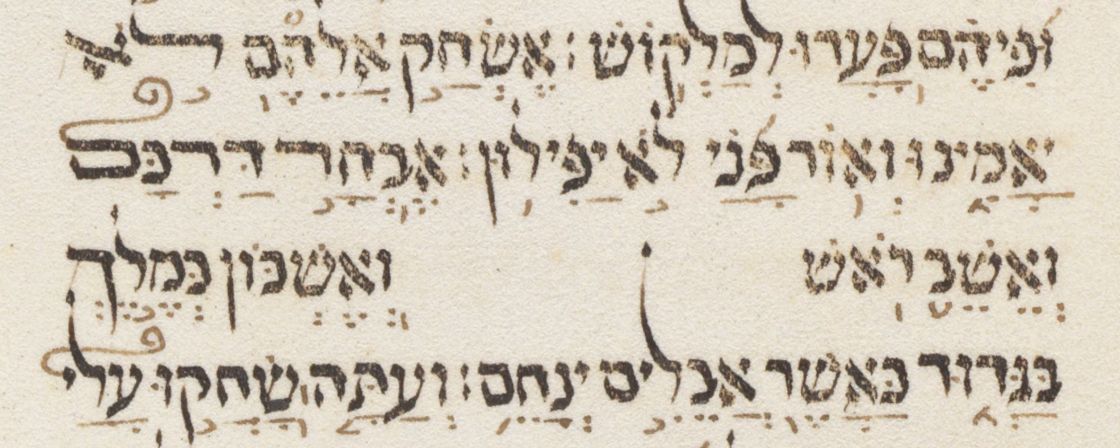 וּפִיהֶם פָּעֲרוּ לְמַלְקוֹשׁ׃ אֶשְׂחַק אֲלֵהֶם לֹא
יַאֲמִינוּ וְאוֹר פָּנַי לֹא יַפִּילוּן׃ אֶבְחַר דַּרְכָּם
וְאֵשֵׁב רֹאשׁ וְאֶשְׁכּוֹן כְּמֶלֶךְ
בַּגְּדוּד כַּאֲשֶׁר אֲבֵלִים יְנַחֵם׃ וְעַתָּה שָׂחֲקוּ עָלַי